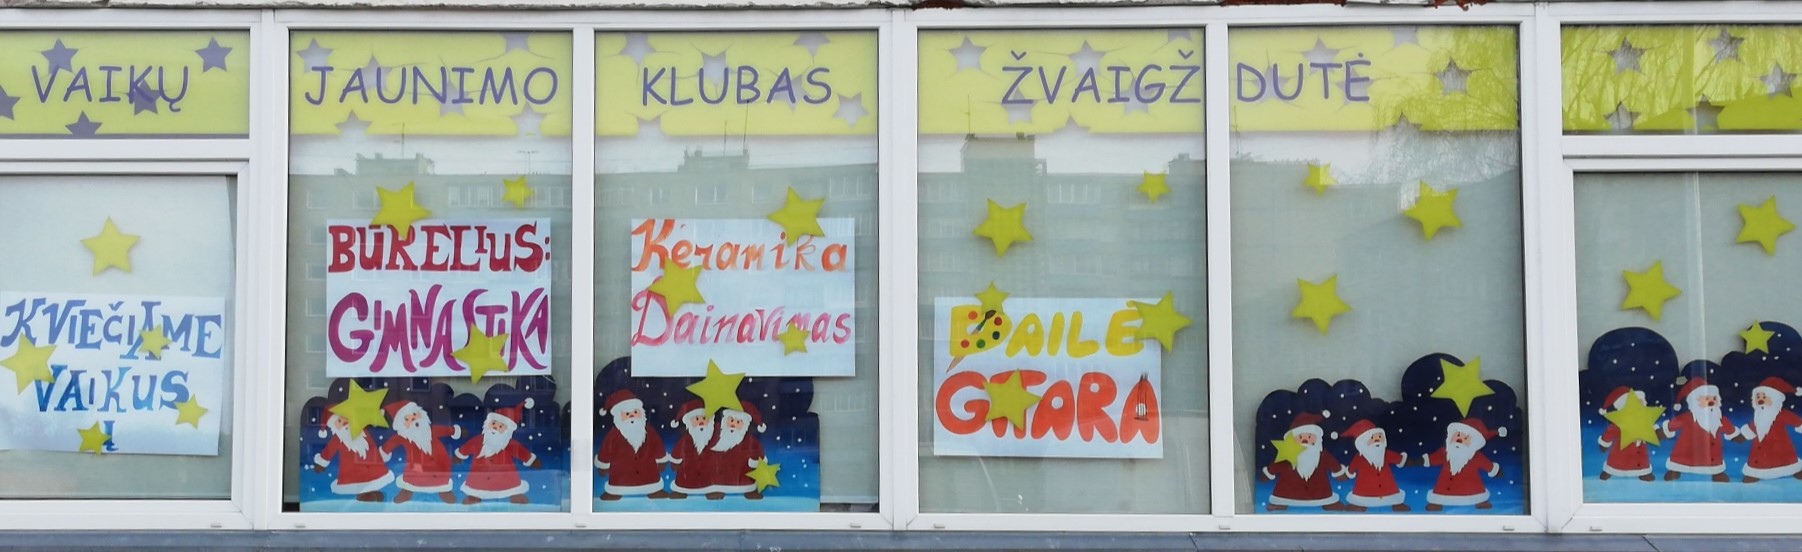 VAIKŲ JAUNIMO KLUBAS ŽVAIGŽDUTĖ
KVIEČIAME
VAIKUS
Į
BŪRELIUS:
GIMNASTIKA
Keramika
Dainavimas
DAILĖ
GITARA